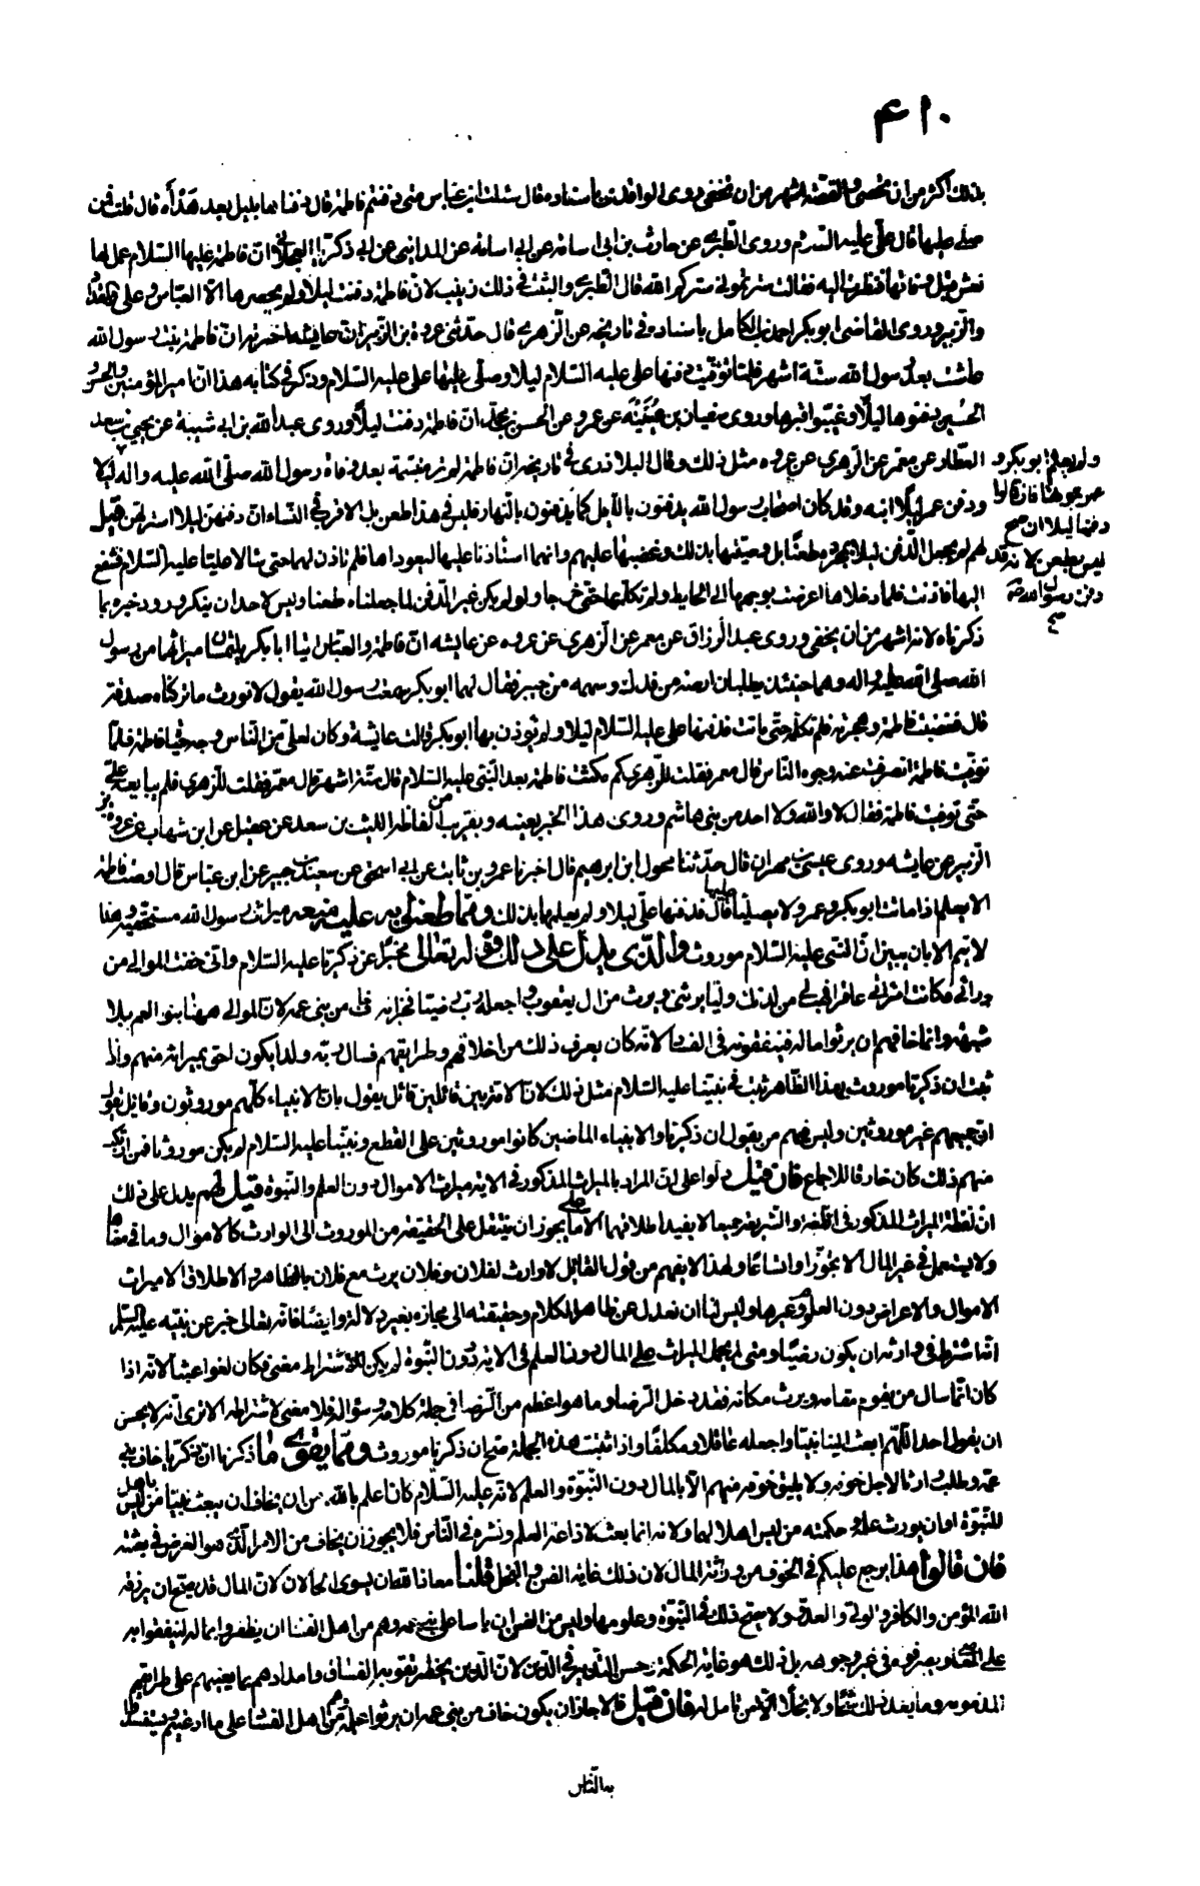 ۴۱۰
بذلك اكثر من ان تحصى والقصّة اشهر من ان تخفى وروى الواقدى باسناده قال سئلت ابن عباس متى دفنتم فاطمة قال دفناها بليل بعد هَدْأة قال قلت فمن
صلّى عليها قال علىّ عليه السّلام وروى الطبرى عن حارث بن ابى اسامة عن المداينى عن ابى ذكريّا العجلانى انّ فاطمة عليها السّلام عمل لها
نعش قبل وفاتها فنظرت اليه فقالت سترتمونى ستركم الله قال الطبرى والثبت فى ذلك زينب لان فاطمة دفنت ليلا ولم يحضرها الا العبّاس وعلى والمقداد
والزبير وروى القاضى ابو بكر احمد بن كامل باسناده فى تاريخه عن الزهرى قال حدّثنى عروة بن الزبير انّ عايشة اخبرته ان فاطمة بنت رسول الله
عاشت بعد رسول الله ستّة اشهر فلمّا توفّيت دفنها على عليه السّلام ليلا وصلّى عليها على عليه السّلام وذكر فى كتابه هذا انّ امير المؤمنين والحسن و
الحُسين دفنوها ليلًا وغيّبوا قبرها وروى سفيان بن عُيَيْنَه عن عمرو عن الحسن بن محمّد انّ فاطمة دفنت ليلًا وروى عبد الله بن ابى شيبة عن يحيى بن سعد
العطّار عن معمر عن الزهرى عن عروه مثل ذلك وقال البلاذرى فى تاريخه انّ فاطمة لم تر متبسّمة بعد وفاة رسول الله صلّى الله عليه واله
ولم يعلم ابو بكر و
عمر بموتها فان قالوا
دفنها ليلا ان صح
ليس بطعن لانه قد
دفن رسول الله
صح
ودفن عمر ليلًا ابنه وقد كان اصحاب رسول الله يدفنون بالليل كما يدفنون بالنهار فليس فى هذا طعن بل الاقرب فى النّساء انّ دفنهنّ ليلا استر لهنّ قيل
لهم لم نجعل الدّفن ليلا بمجرّده طعنًا بل وصيّتها بذلك وغضبها عليهم وانهما استاذنا عليها ليعوداها فلم تاذن لهما حتى سالا عليّا عليه السّلام فشفع
اليها فاذنت فلما دخلا اعرضت بوجهها الى الحايط ولم تكلّمهما حتى خرجا ولو لم يكن غير الدّفن لما جعلناه طعنا وليس لاحد ان ينكر ورود خبره بما
ذكرناه لانه اشهر من ان يخفى وروى عبد الرزاق عن معمر عن الزهرى عن عروه عن عايشه انّ فاطمة والعبّاس اتيا ابا بكر يلتمسان ميراثهما من رسول
الله صلى الله عليه واله وهما حينئذ يطلبان ارضه من فدك وسهمه من خيبر فقال لهما ابو بكر سمعت رسول الله يقول لا نورث ما تركناه صدقة
قال فغضبت فاطمة وهجرته فلم تكلّمه حتى ماتت فدفنها على عليه السّلام ليلا ولم يؤذن بها ابو بكر قالت عايشة وكان لعلىّ من النّاس وجه حيوة فاطمة فلمّا
توفّيت فاطمة انصرفت عنه وجوه النّاس قال معمر فقلت للزّهرى كم مكثت فاطمة بعد النّبى عليه السّلام قال ستّة اشهر قال معمر فقلت للزّهرى فلم يبايعه علىّ
حتّى توفيت فاطمة فقال لا والله ولا احد من بنى هاشم وروى هذا الخبر بعينه وبقريب من الفاظه الليث بن سعد عن عقيل عن ابن شهاب عن عروة بن
الزبير عن عايشه وروى عيسى بن مهران قال حدّثنا مخول ابن ابرهيم قال اخبرنا عمرو بن ثابت عن ابى اسحق عن سعيد بن جبير عن ابن عباس قال اوصت فاطمة
الا يعلم اذا ماتت ابو بكر وعمر ولا يصلّيا عليها قال فدفنها علىّ ليلا ولم يعلمهما بذلك وممّا طعنوا به عليه منعه ميراث رسول الله مستحقّيه وهذا
لا يتم الا بان يبين انّ النّبى عليه السّلام موروث والّذى يدلّ على ذلك قوله تعالى مخبرًا عن زكريّا عليه السّلام وانّى خفت الموالى من
ورائى وكانت امرأتى عاقرا فهب لى من لدنك وليّا يرثنى ويرث من ال يعقوب واجعله رب رضيّا فخبر انه خاف من بنى عمه لان الموالى ههنا بنو العم بلا
شبهة وانما خافهم ان يرثوا ماله فينفقونه فى الفساد لانّه كان يعرف ذلك من اخلاقهم وطرايقهم فسال ربّه ولدا يكون احق بميراثه منهم واذا
ثبت ان ذكريّا موروث بهذا الظّاهر ثبت فى نبيّنا عليه السّلام مثل ذلك لانّ الامّة بين قائلين قائل يقول بانّ الانبياء كلّهم موروثون وقايل يقول
انّ جميعهم غير موروثين وليس فيهم من يقول ان ذكريّا والانبياء الماضين كانوا موروثين على القطع ونبيّنا عليه السّلام لم يكن موروثا فمن ارتكب
منهم ذلك كان خارقا للاجماع فان قيل دلّوا على انّ المراد بالميراث المذكور فى الاية ميراث الاموال دون العلم والنّبوة قيل لهم يدل على ذلك
انّ لفظة الميراث المذكور فى اللّغة والشّريعة جميعا لا يفيد اطلاقهما الا على ما يجوز ان ينتقل على الحقيقة من الموروث الى الوارث كالاموال وما فى معناها
ولا يستعمل فى غير المال الا تجوّزا واتّساعًا ولهذا لا يفهم من قول القائل لا وارث لفلان وفلان يرث مع فلان بالظاهر والاطلاق الا ميراث
الاموال والاعراض دون العلوم وغيرها وليس لنا ان نعدل عن ظاهر الكلام وحقيقته الى مجازه بغير دلالة وايضًا فانّه تعالى خبر عن نبيّه عليه السّلم
انّه اشترط فى وارثه ان يكون رضيّا ومتى لم يحمل الميراث على المال دون العلم فى الاية دون النّبوة لم يكن للاشتراط معنى وكان لغوا عبثًا لانّه اذا
كان انّما سال من يقوم مقامه ويرث مكانه فقد دخل الرّضا وما هو اعظم من الرّضا فى جملة كلامه وسؤاله فلا معنى لاشتراطه الا ترى انّه لا يحسن
ان يقول احد اللّهم ابعث الينا نبيّا واجعله عاقلا ومكلّفًا واذا ثبتت هذه الجملة صح ان ذكريّا موروث وممّا يقوّى ما ذكرنا انّ زكريّا خاف بنى
عمّه وطلب وارثا لاجل خوفه ولا يليق خوفه منهم الّا بالمال دون النّبوة والعلم لانّه عليه السّلام كان اعلم بالله من ان يخاف ان يبعث نبيّا من ليس باهل
للنّبوة او ان يورث علمه وحكمته من ليس اهلا لهما ولانه انما بعث لاذاعة العلم ونشره فى النّاس فلا يجوز ان يخاف من الامر الّذى هو الغرض فى بعثته
فان قالوا هذا يرجع عليكم فى الخوف من وراثة المال لان ذلك غاية الضن والبخل قلنا معاذ الله ان يستوى الحالان لانّ المال قد يصح ان يرزقه
الله المؤمن والكافر والولىّ والعدوّ ولا يصح ذلك فى النّبوّة وعلومها وليس من الضن ان ياسا على بنى عمه وهم من اهل الفساد ان يظفروا بماله لينفقوا به
على المعاصى ويصرفوه فى غير وجوهه بل ذلك هو غاية الحكمة وحسن التّدبير فى الدّين لانّ الدّين يحظر تقوية الفسّاق وامدادهم بما يعينهم على طرايقهم
المذمومه وما يعد ذلك شحّا ولا بخلًا الّا من لا تامل له فان قيل فالا جاز ان يكون خاف من بنى عمه ان يرثوا علمه وهم من اهل الفساد على ما ادعيتم ويستفسدوا
به النّاس